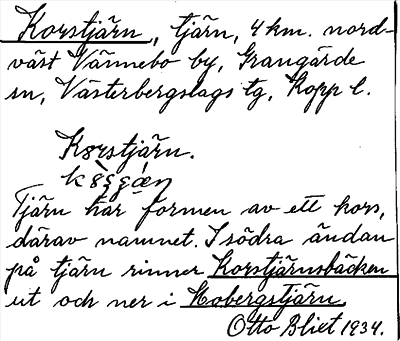 Korstjärn, tjärn, 4 km. nord-
väst Vännebo by, Grangärde
sn, Västerbergslags tg, Kopp l.
Korstjärn.
Tjärn har formen av ett kors,
därav namnet. I södra ändan
på tjärn rinner Korstjärnsbäcken
ut och ner i Mobergstjärn.
Otto Bliet 1934.